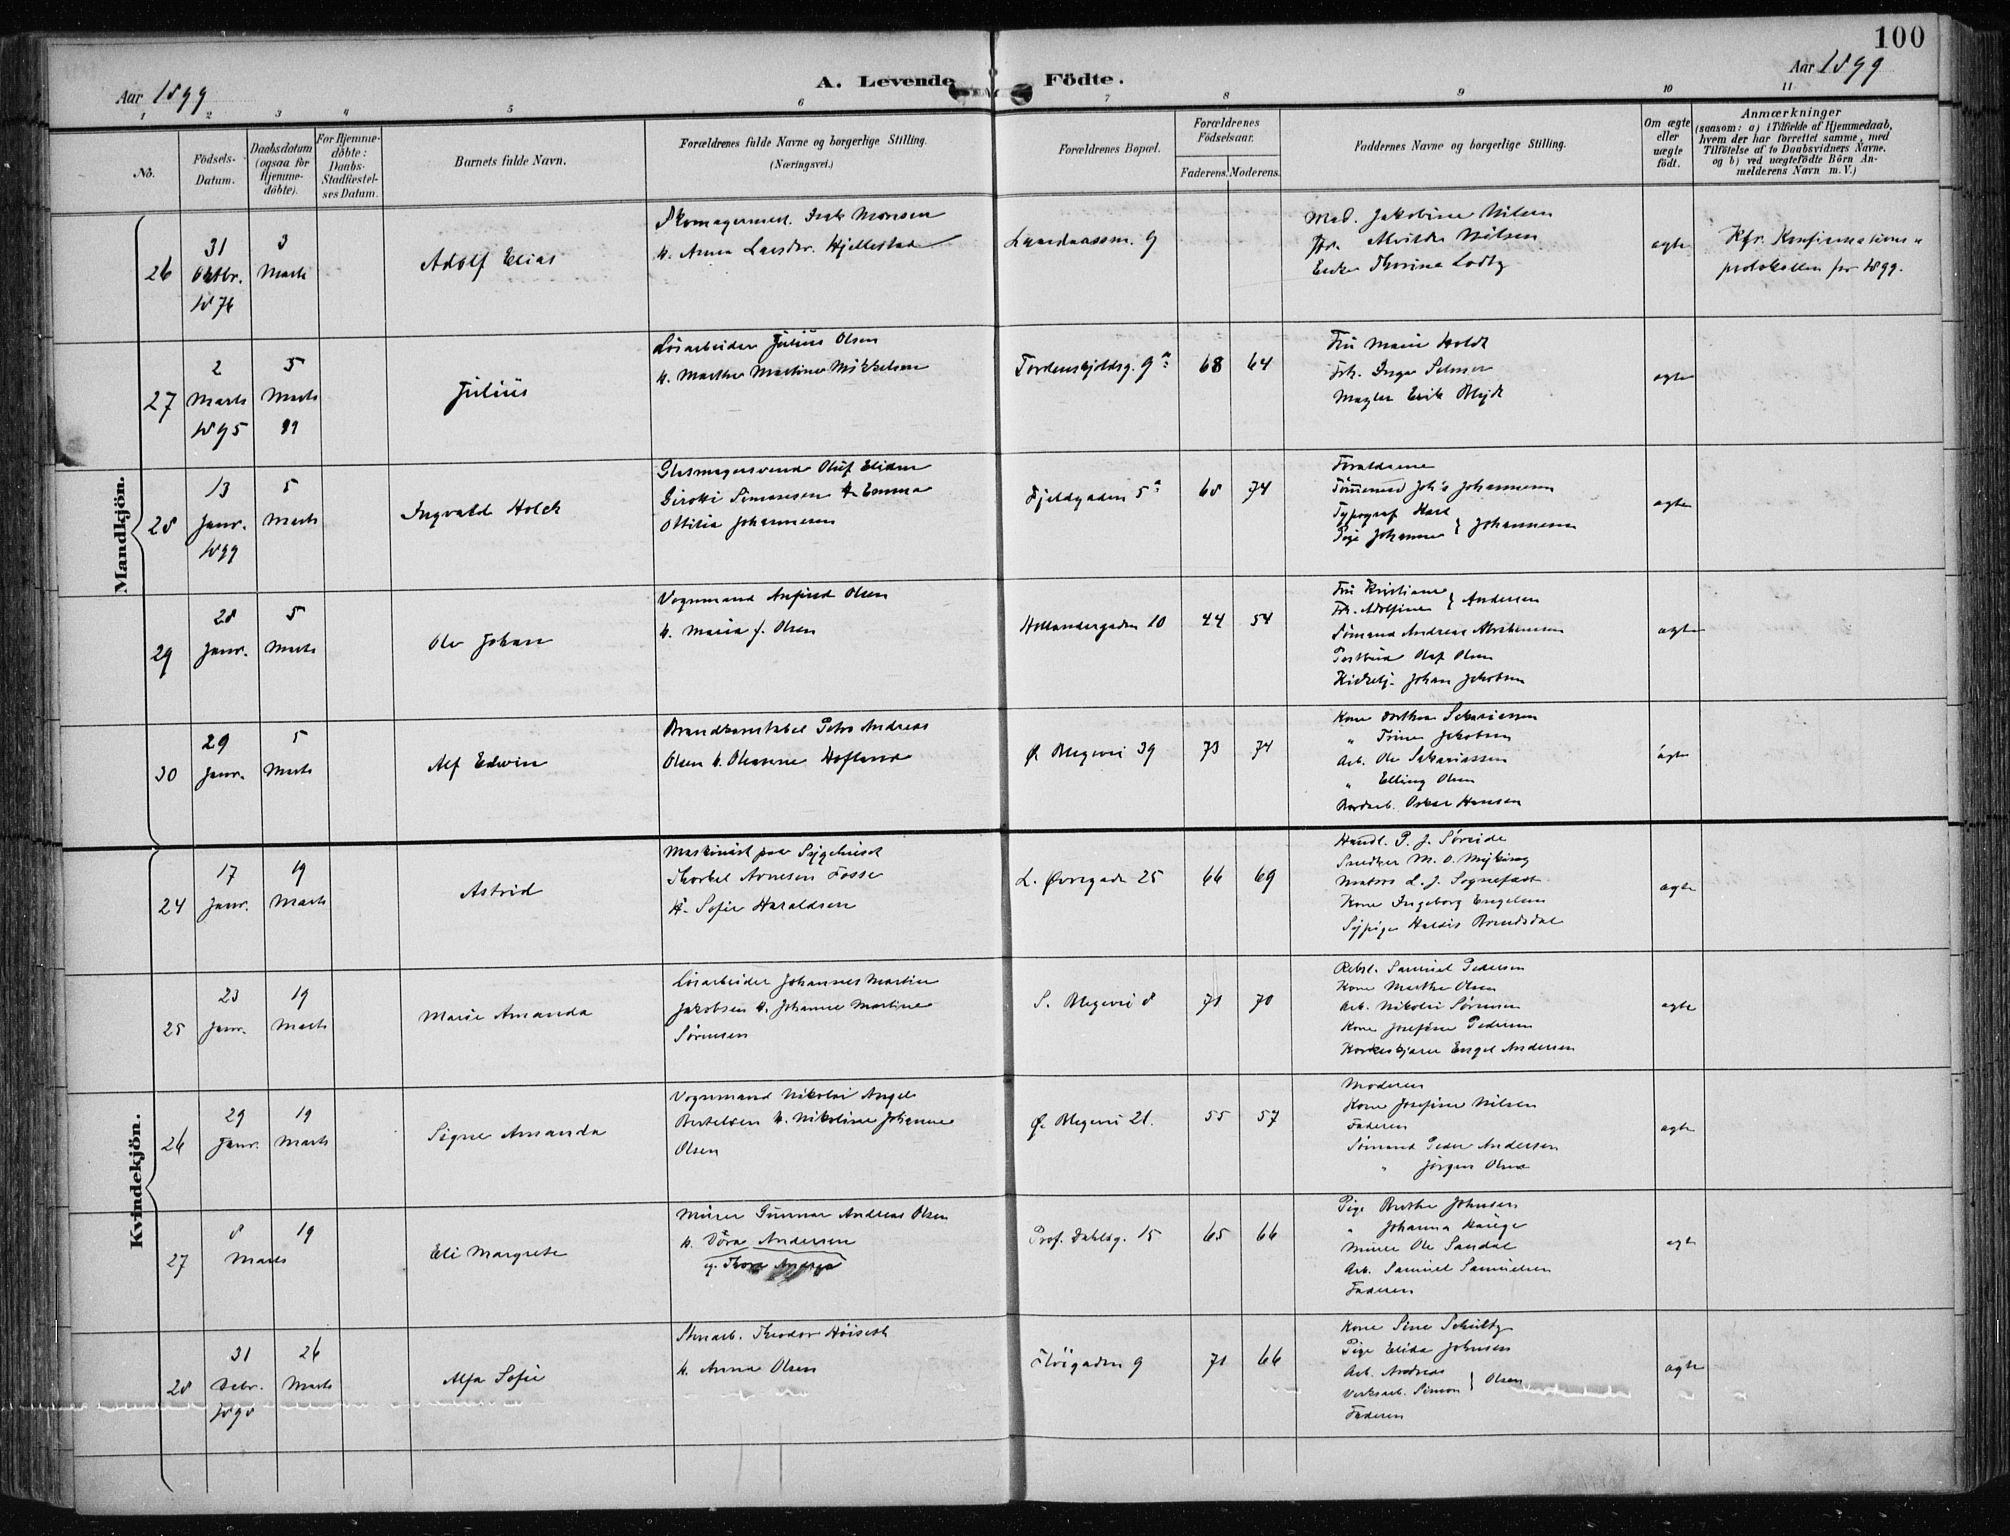 100
Aar 1899
A. Levende Födte.
Aar 1899
1 2 3 4 5 6 7 8 9 10 11
No.
Födsels-Datum.
Daabsdatum (ogsaa for Hjemmedöbte).
For Hjemmedöbte: Daabs-Stadfæstelses Datum.
Barnets fulde Navn.
Forældrenes fulde Navne og borgerlige Stilling.
(Næringsvei.)
Forældrenes Bopæl.
Forældrenes Födselsaar.
Faderens. Moderens.
Faddernes Navne og borgerlige Stilling.
Om ægte eller uægte födt.
Anmærkninger
(saasom: a) i Tilfælde af Hjemmedaab,
hvem der har forrettet samme, med
Tilföielse af to Daabsvidners Navne,
og b) ved uægtefödte Börn An-
melderens Navn m. V.)
Mandkjön.
26
31 Oktbr. 1876
3 Marts
Adolf Elias
Skomagermest. Isak Monsen
h. Anna Larsdtr. Hjellestad
9
Mad. Jakobine Nilsen
Frk. Alvilde Nilsen
Enke Thorina Lodtz
ægte
Kfr. Konfirmations-
protokollen for 1899.
27
2 Marts 1895
5 Marts 99
Julius
Løsarbeider Julius Olsen
h. Marthe Martine Mikkelsen
Tordenskjoldsg. 9a
68 64
Fru Marie Holdt
Frk. Inga
Mægler Erik Blydt
ægte
28
13 Janr. 1899
5 Marts
Ingvald Holck
Glasmagersvend Oluf Elidor
Girotti Simonsen h. Emma
Ottilia Johannesen
Fjeldgaden 5a
68 74
Forældrene
Tømmermd Joh's Johannesen
Typograf Karl
Pige Johanne } Johannesen
ægte
29
28 Janr.
5 Marts
Ole Johan
Vognmand Anfind Olsen
h. Maria f. Olsen
Hollendergaden 10
44 54
Fru Kristiane
Frk. Adolfine } Andersen
Sømand Andreas Abrahamsen
Postbud Olaf Olsen
Johan Jakobsen
ægte
30
29 Janr.
5 Marts
Alf Edvin
Brandkonstabel Peter Andreas
Olsen h. Oleanne Hofland
Ø. Blegevei 39
73 74
Kone Dorthea Sakariassen
" Trine Jakobsen
Arb. Ole Sakariassen
" Elling Olsen
Oskar Hansen
ægte
Kvindekjön.
24
17 Janr.
19 Marts
Astrid
Maskinist paa Sygehuset
Thorkel Arnesen Fosse
h. Sofie Haraldsen
L. Øvregade 25
66 69
Handl. P. J. Søreide
Snedker M. O. Myking
Matros L. J. Sognefæst
Kone Ingeborg Engelsen
Sypige Haldis Brendsdal
ægte
25
23 Janr.
19 Marts
Marie Amanda
Løsarbeider Johannes Martin
Jakobsen h. Johanne Martine
Sørensen
S. Blegevei 8
71 70
Rebsl. Samuel Pedersen
Kone Marthe Olsen
Arb. Nikolai Sørensen
Kone Josefine Pedersen
Korkeskjærer Engel Andersen
ægte
26
29 Janr.
19 Marts
Signe Amanda
Vognmand Nikolai Angel
Bertelsen h. Nikoline Johanne
Olsen
Ø. Blegevei 21.
55 57
Moderen
Kone Josefine Nilsen
Faderen
Sømand Peder Andersen
" Jørgen Olsen
ægte
27
8 Marts
19
Eli Margrete
Murer Gunnar Andreas Olsen
h. Dora Andersen
Thora Andrea
Prof. Dahlsg. 15
65 66
Pige Berthe Johnsen
" Johanna Hauge
Murer Ole Sandal
Arb. Samuel Samuelsen
Faderen
ægte
28
31 Decbr. 1898
26 Marts
Alfa Sofie
Stenarb. Theodor Høiseth
h. Anna Olsen
Fløigaden 9
71 66
Kone Sine Schultz
Pige Elida Johnsen
Arb. Andreas
Verksarb. Simon } Olsen
Faderen
ægte